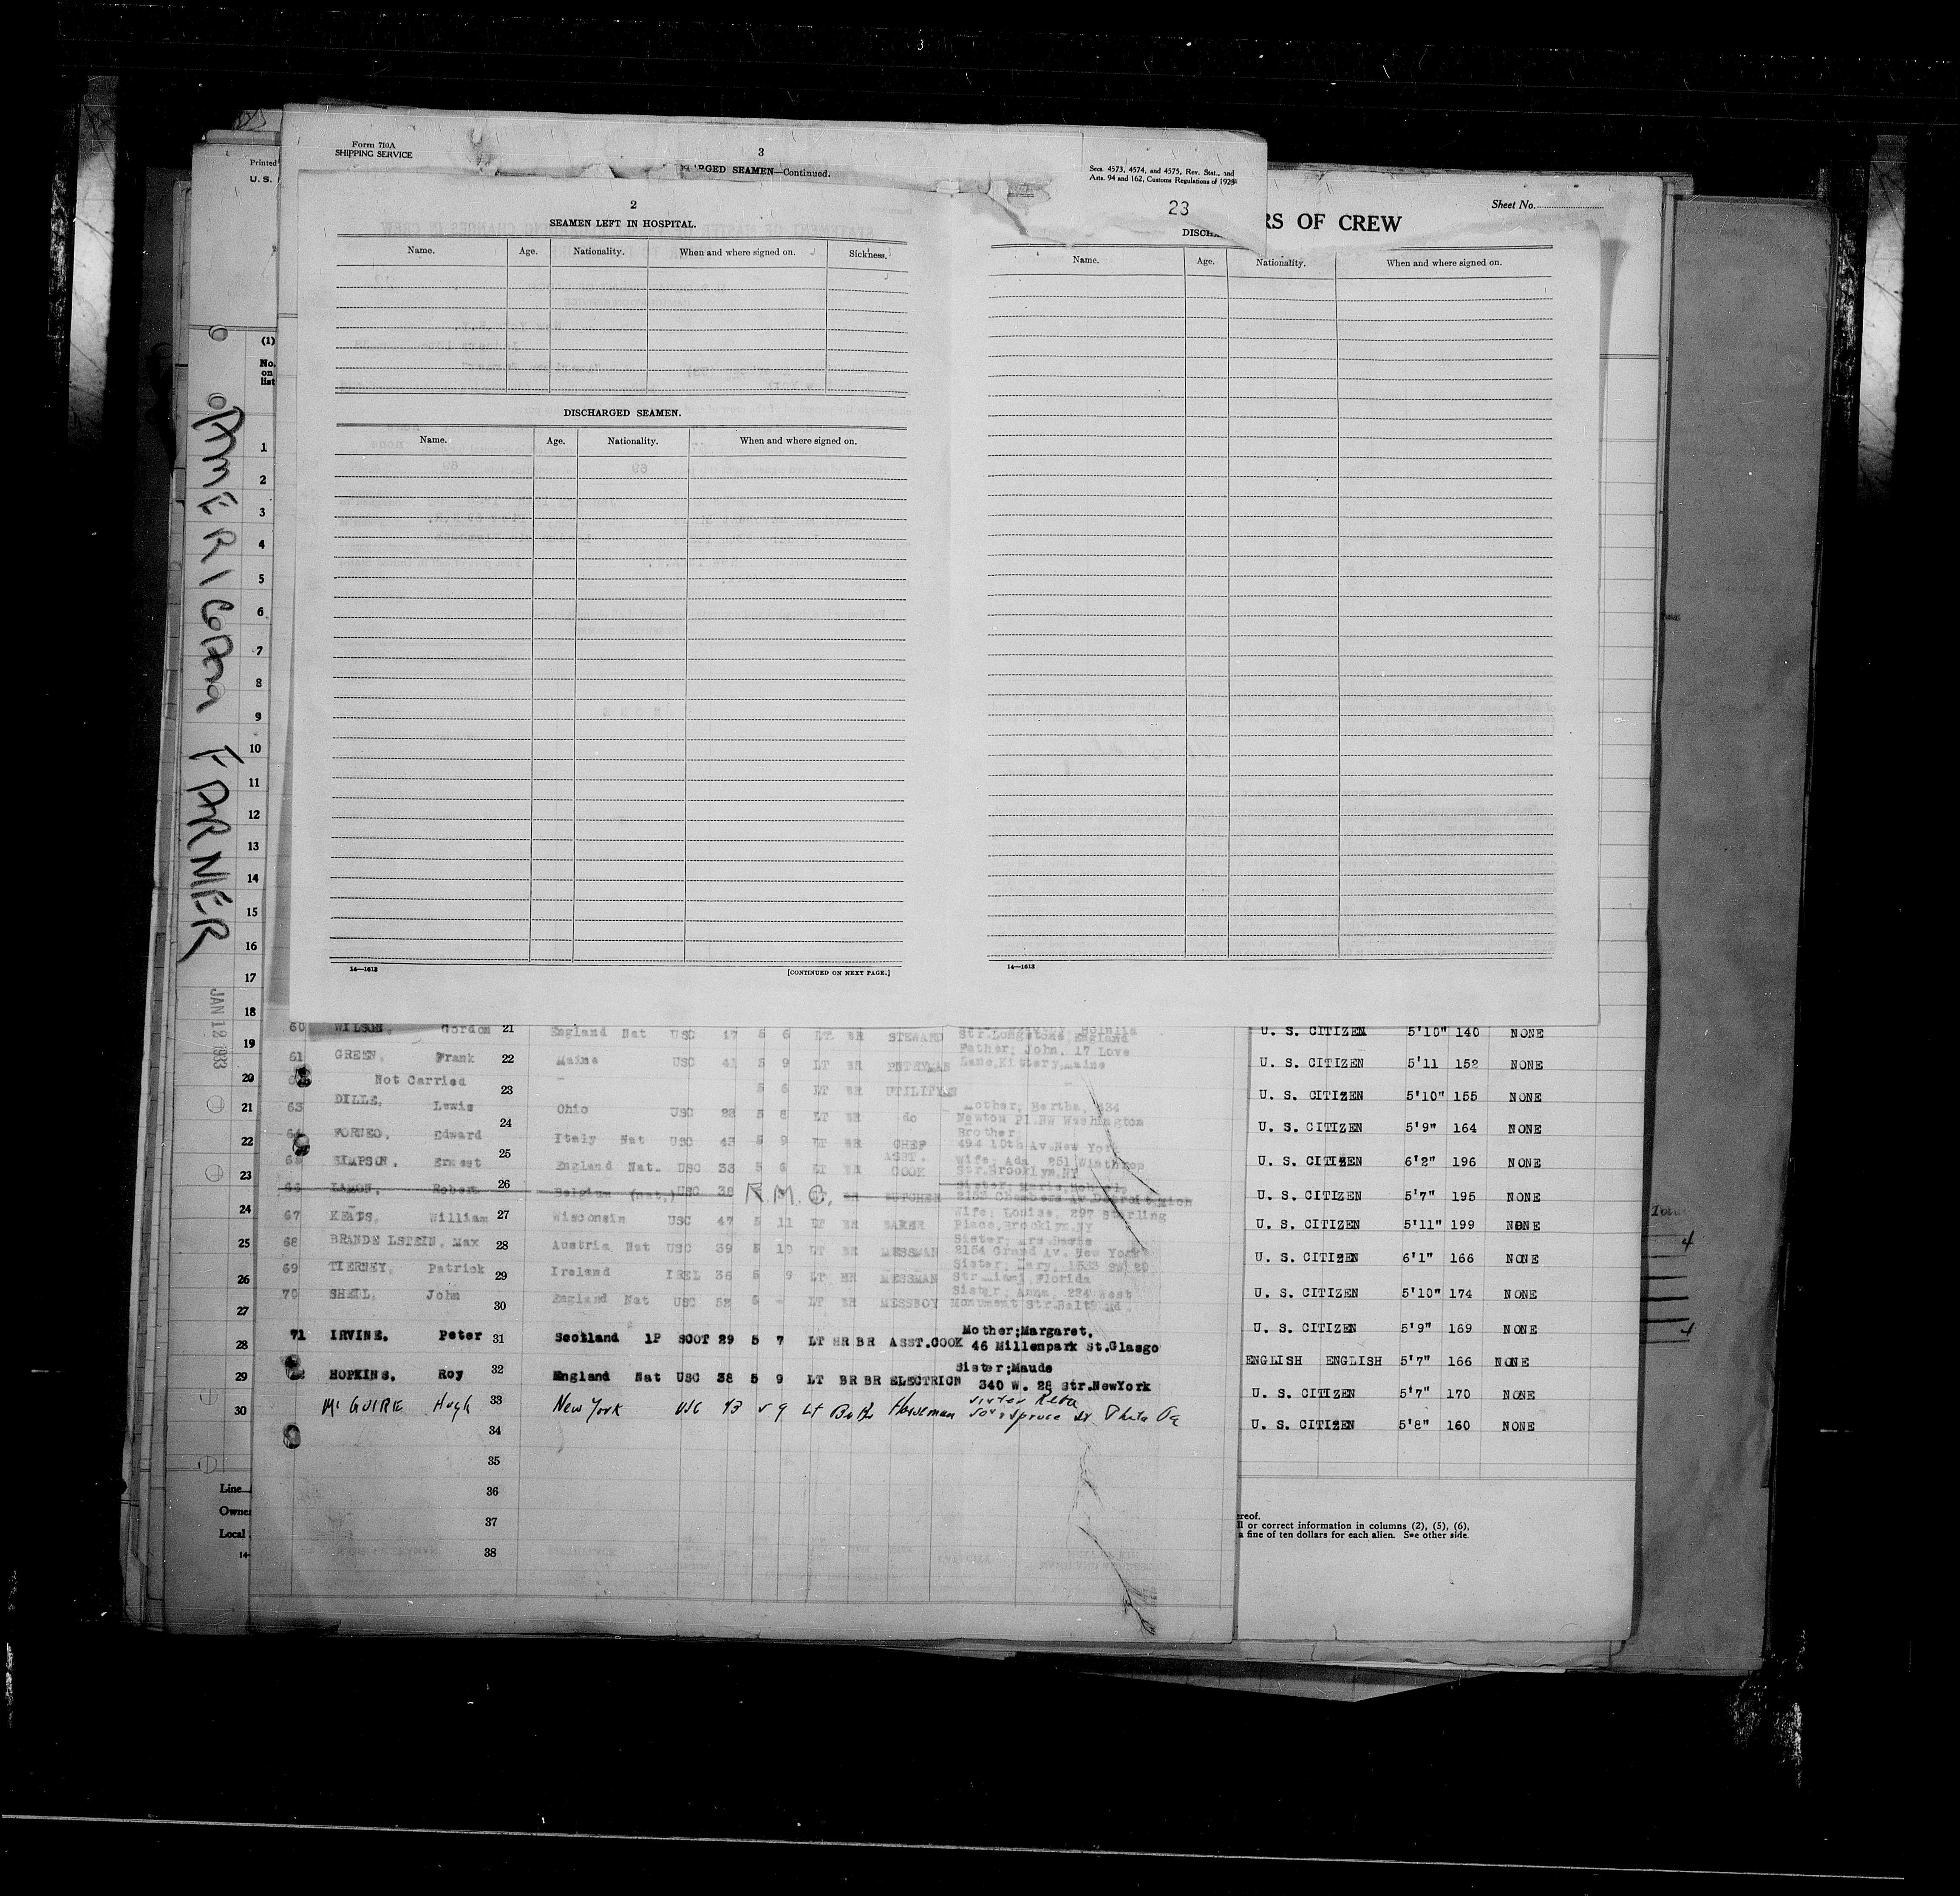 Form 710A
SHIPPING SERVICE
3
RGED SEAMEN—Continued.
Secs. 4573, 4574, and 4575, Rev. Stat., and
Arts. 94 and 162, Customs Regulations of 1923
23
Printed
U. S.
Sheet No.
RS OF CREW
2
SEAMEN LEFT IN HOSPITAL.
Name. Age. Nationality. When and where signed on. Sickness.
DISCHARGED SEAMEN.
Name. Age. Nationality. When and where signed on.
14—1613 [CONTINUED ON NEXT PAGE.]
DISCHA
Name. Age. Nationality. When and where signed on.
14—1613
AMERICAN FARMER
JAN 12 1933
(1)
No.
on
list
1
2
3
4
5
6
7
8
9
10
11
12
13
14
15
16
17
18
19
20
21
22
23
24
25
26
27
28
29
30
Line
Owner
Local
14-
60 WILSON, Gordon 21 England Nat USC 47 5 6 LT BR STEWARD Str. Longstone, England
61 GREEN, Frank 22 Maine USC 41 5 9 LT BR PNTRYMAN Father; John, 17 Love
Lane, Kittery, Maine
Not Carried 23 - 5 6 LT BR UTILITYMN -
63 DILLE, Lewis 24 Ohio USC 28 5 8 LT BR do Mother, Bertha, 634
Newton Pl. NW Washington
64 FORNEO, Edward 25 Italy Nat USC 43 5 9 LT BR CHEF Brother
494 10th Av New York
SIMPSON, Ernest 26 England Nat. USC 33 5 6 LT BR ASST. COOK Wife, Ada 251 Winthrop
Str. Brooklyn, NY
66 LAMON, Robert Belgium (nat.) USC 38 R.M.C. BR BUTCHER
2153 Chambers Av. Detroit, Mich
67 KEATS, William 27 Wisconsin USC 47 5 11 LT BR BAKER Wife; Louise, 297 Sterling
Place, Brooklyn, NY
68 BRANDELSTEIN, Max 28 Austria, Nat USC 39 5 10 LT BR MESSMAN Sister; Mrs
2154 Grand Av. New York
69 TIERNEY, Patrick 29 Ireland IREL 36 5 9 LT BR MESSMAN Sister, Mary, 1533 SW 20
Str Miami, Florida
70 John 30 England Nat USC 52 6 - LT BR MESSBOY Sister; Anna, 224 West
Monument Str. Balt, Md.
71 IRVINE, Peter 31 Scotland 1P SCOT 29 5 7 LT HR BR ASST.COOK Mother;Margaret,
46 Millenpark St.Glasgo
HOPKINS, Roy 32 England Nat USC 38 5 9 LT BR BR ELECTRICN Sister;Maude
340 W. 28 Str.NewYork
McGUIRE Hugh 33 New York USC 43 5 9 Lt Horseman Sister Reba
Spruce St Phila Pa
34
35
36
37
38
U. S. CITIZEN 5'10" 140 NONE
U. S. CITIZEN 5'11 152 NONE
U. S. CITIZEN 5'10" 155 NONE
U. S. CITIZEN 5'9" 164 NONE
U. S. CITIZEN 6'2" 196 NONE
U. S. CITIZEN 5'7" 195 NONE
U. S. CITIZEN 5'11" 199 NONE
U. S. CITIZEN 6'1" 166 NONE
U. S. CITIZEN 5'10" 174 NONE
U. S. CITIZEN 5'9" 169 NONE
ENGLISH ENGLISH 5'7" 166 NONE
U. S. CITIZEN 5'7" 170 NONE
U. S. CITIZEN 5'8" 160 NONE
ereof.
ll or correct information in columns (2), (5), (6),
a fine of ten dollars for each alien. See other side.
4
4